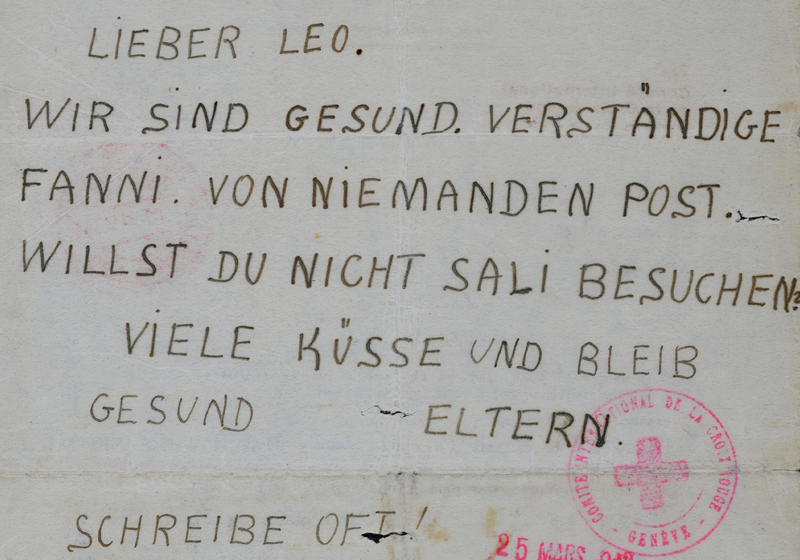 LIEBER LEO.
WIR SIND GESUND. VERSTÄNDIGE
FANNI. VON NIEMANDEN POST.
WILLST DU NICHT SALI BESUCHEN?
VIELE KÜSSE UND BLEIB
GESUND ELTERN.
COMITÉ INTERNATIONAL DE LA CROIX ROUGE
- GENÈVE -
SCHREIBE OFT!
25 MARS